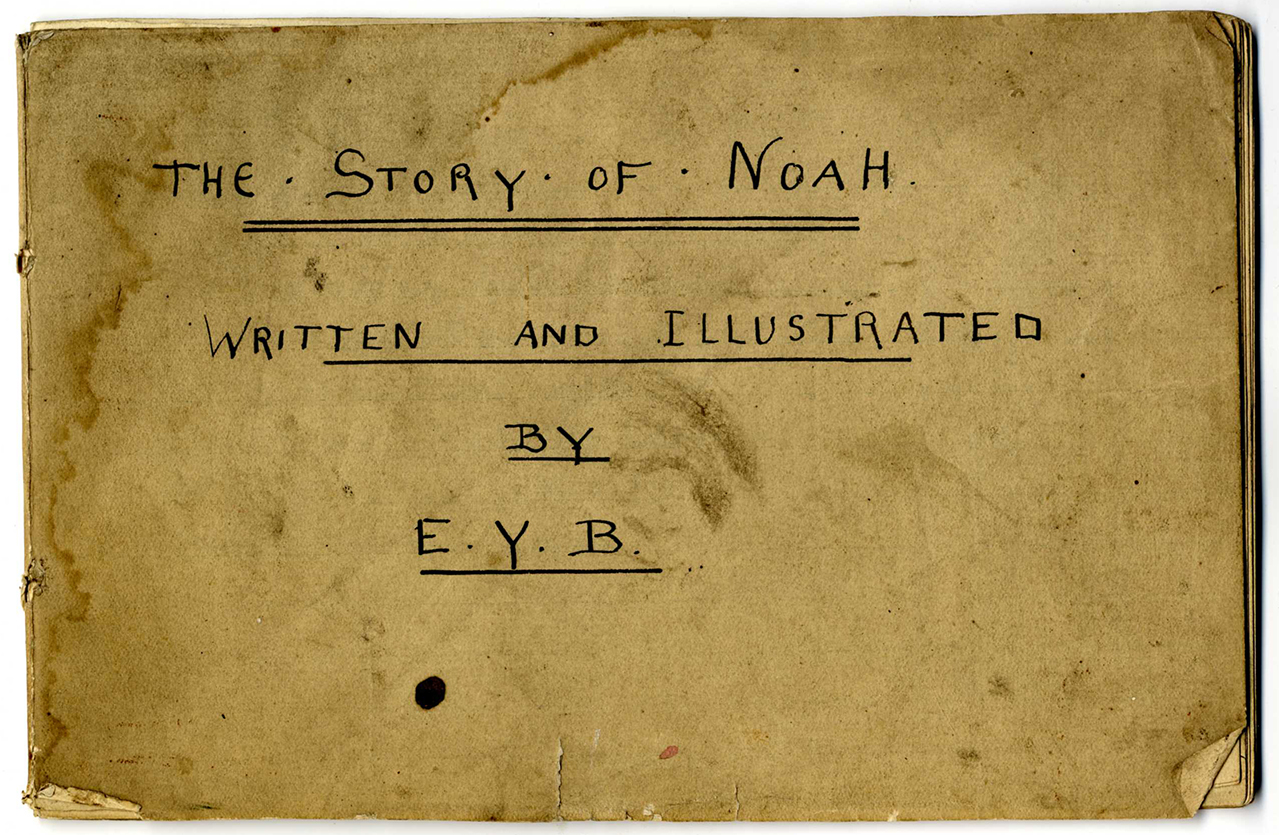 THE · STORY · OF · NOAH.
WRITTEN AND ILLUSTRATED
BY
E. Y. B.